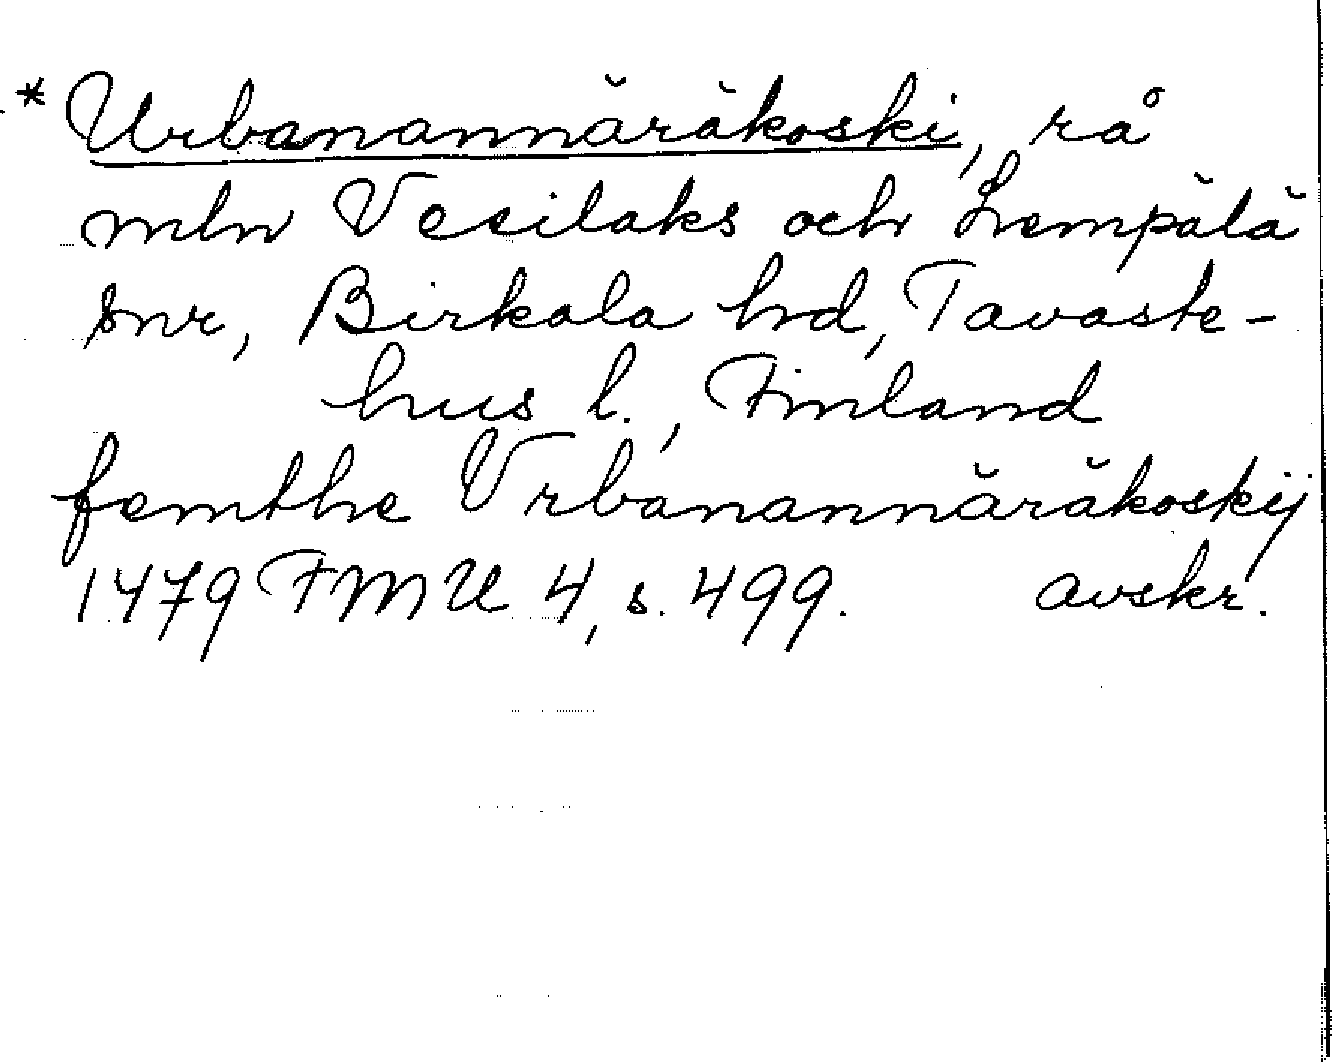 * Urbanannäräkoski, rå
mln Vesilaks och Lempälä
snr, Birkala hrd, Tavaste-
hus l., Finland
femthe Vrbanannäräkoskij
1479 FMU 4, s. 499. avskr.